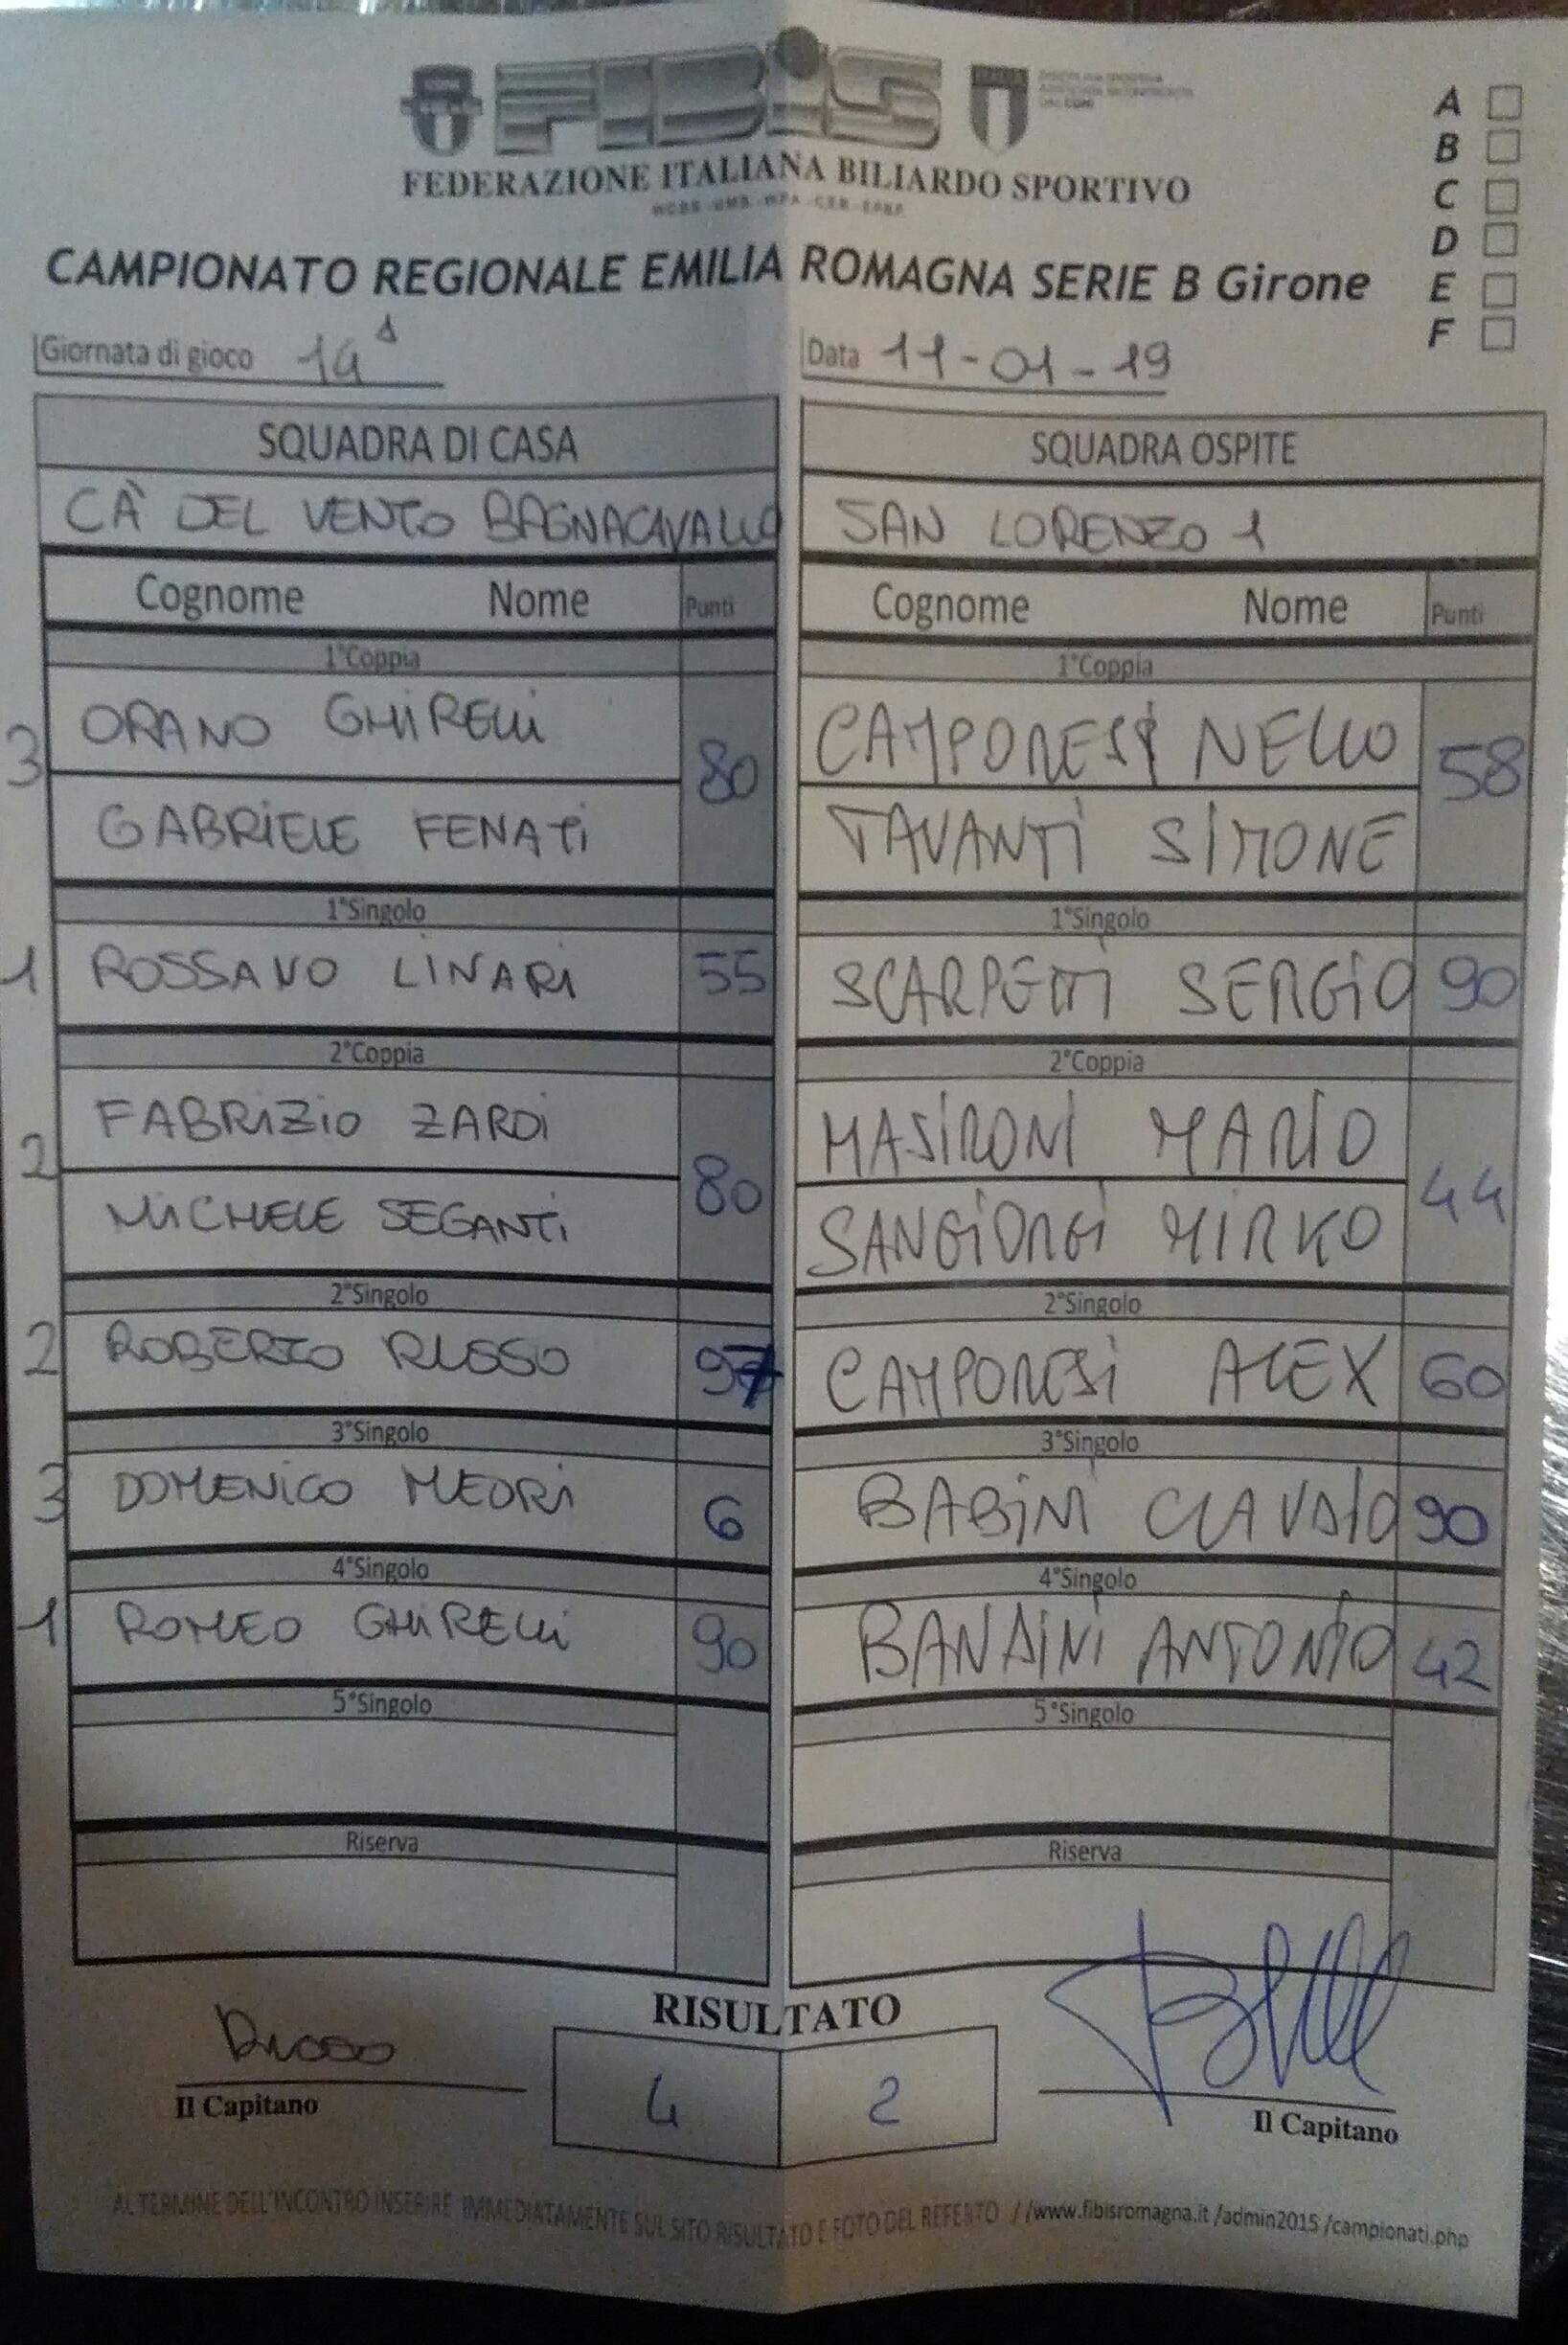 FIBiS
FEDERAZIONE ITALIANA BILIARDO SPORTIVO
WCBS - UMB - WPA - CEB - EPBF
A
B
C
D
E
F
CAMPIONATO REGIONALE EMILIA ROMAGNA SERIE B Girone
Giornata di gioco 14ª
Data 11-01-19
SQUADRA DI CASA
CÀ DEL VENTO BAGNACAVALLO
Cognome Nome Punti
1°Coppia
3 ORANO GHIRELLI 80
GABRIELE FENATI
1°Singolo
1 ROSSANO LINARI 55
2°Coppia
2 FABRIZIO ZARDI 80
MICHELE SEGANTI
2°Singolo
2 ROBERTO RUSSO 97
3°Singolo
3 DOMENICO MEDRI 6
4°Singolo
1 ROMEO GHIRELLI 90
5°Singolo
Riserva
SQUADRA OSPITE
SAN LORENZO 1
Cognome Nome Punti
1°Coppia
CAMPORESI NELLO 58
TAVANTI SIMONE
1°Singolo
SCARPETTI SERGIO 90
2°Coppia
MASIRONI MARIO 44
SANGIORGI MIRKO
2°Singolo
CAMPORESI ALEX 60
3°Singolo
BABINI CLAUDIO 90
4°Singolo
BANDINI ANTONIO 42
5°Singolo
Riserva
RISULTATO
4 2
Russo
Il Capitano
Il Capitano
AL TERMINE DELL'INCONTRO INSERIRE IMMEDIATAMENTE SUL SITO RISULTATO E FOTO DEL REFERTO //www.fibisromagna.it /admin2015 /campionati.php